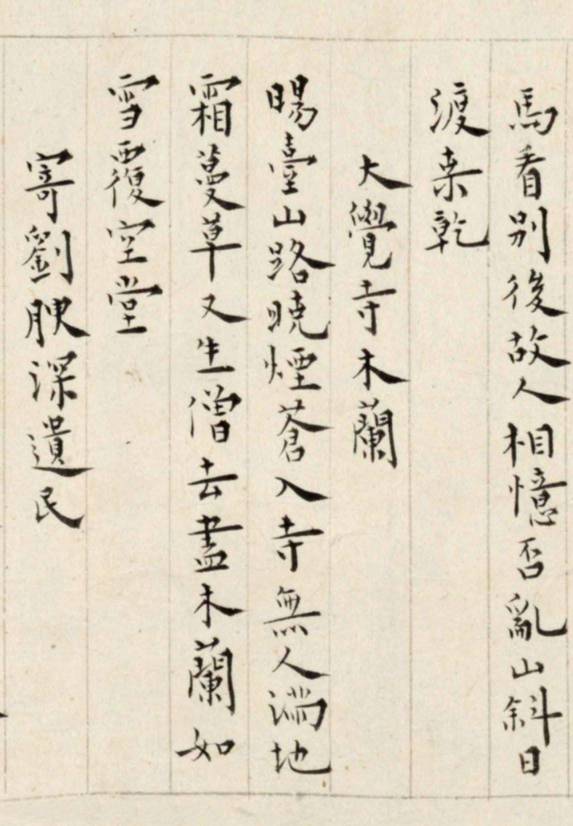 馬看別後故人相憶否亂山斜日
渡桒乾
大覺寺木蘭
暘臺山路曉煙蒼入寺無人滿地
霜蔓草又生僧去盡木蘭如
雪覆空堂
寄劉腴深遺民